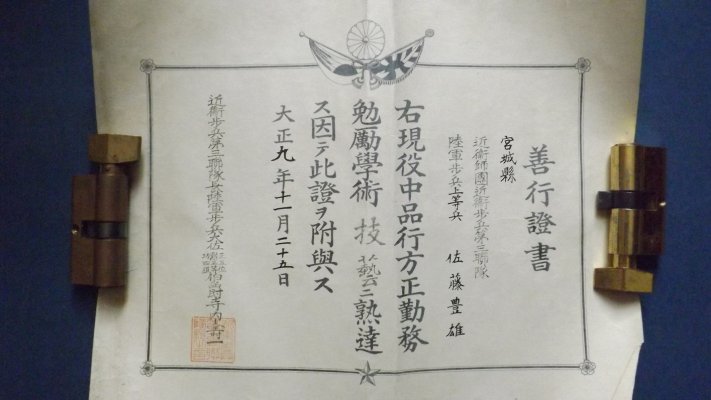 善行證書
宮城縣
近衞師團近衞步兵第三聯隊
陸軍步兵上等兵 佐藤豊雄
右現役中品行方正勤務
勉勵學術技藝ニ熟達
ス因テ此證ヲ附與ス
大正九年十一月二十五日
近衞步兵第三聯隊長陸軍步兵大佐 伯爵寺內壽一